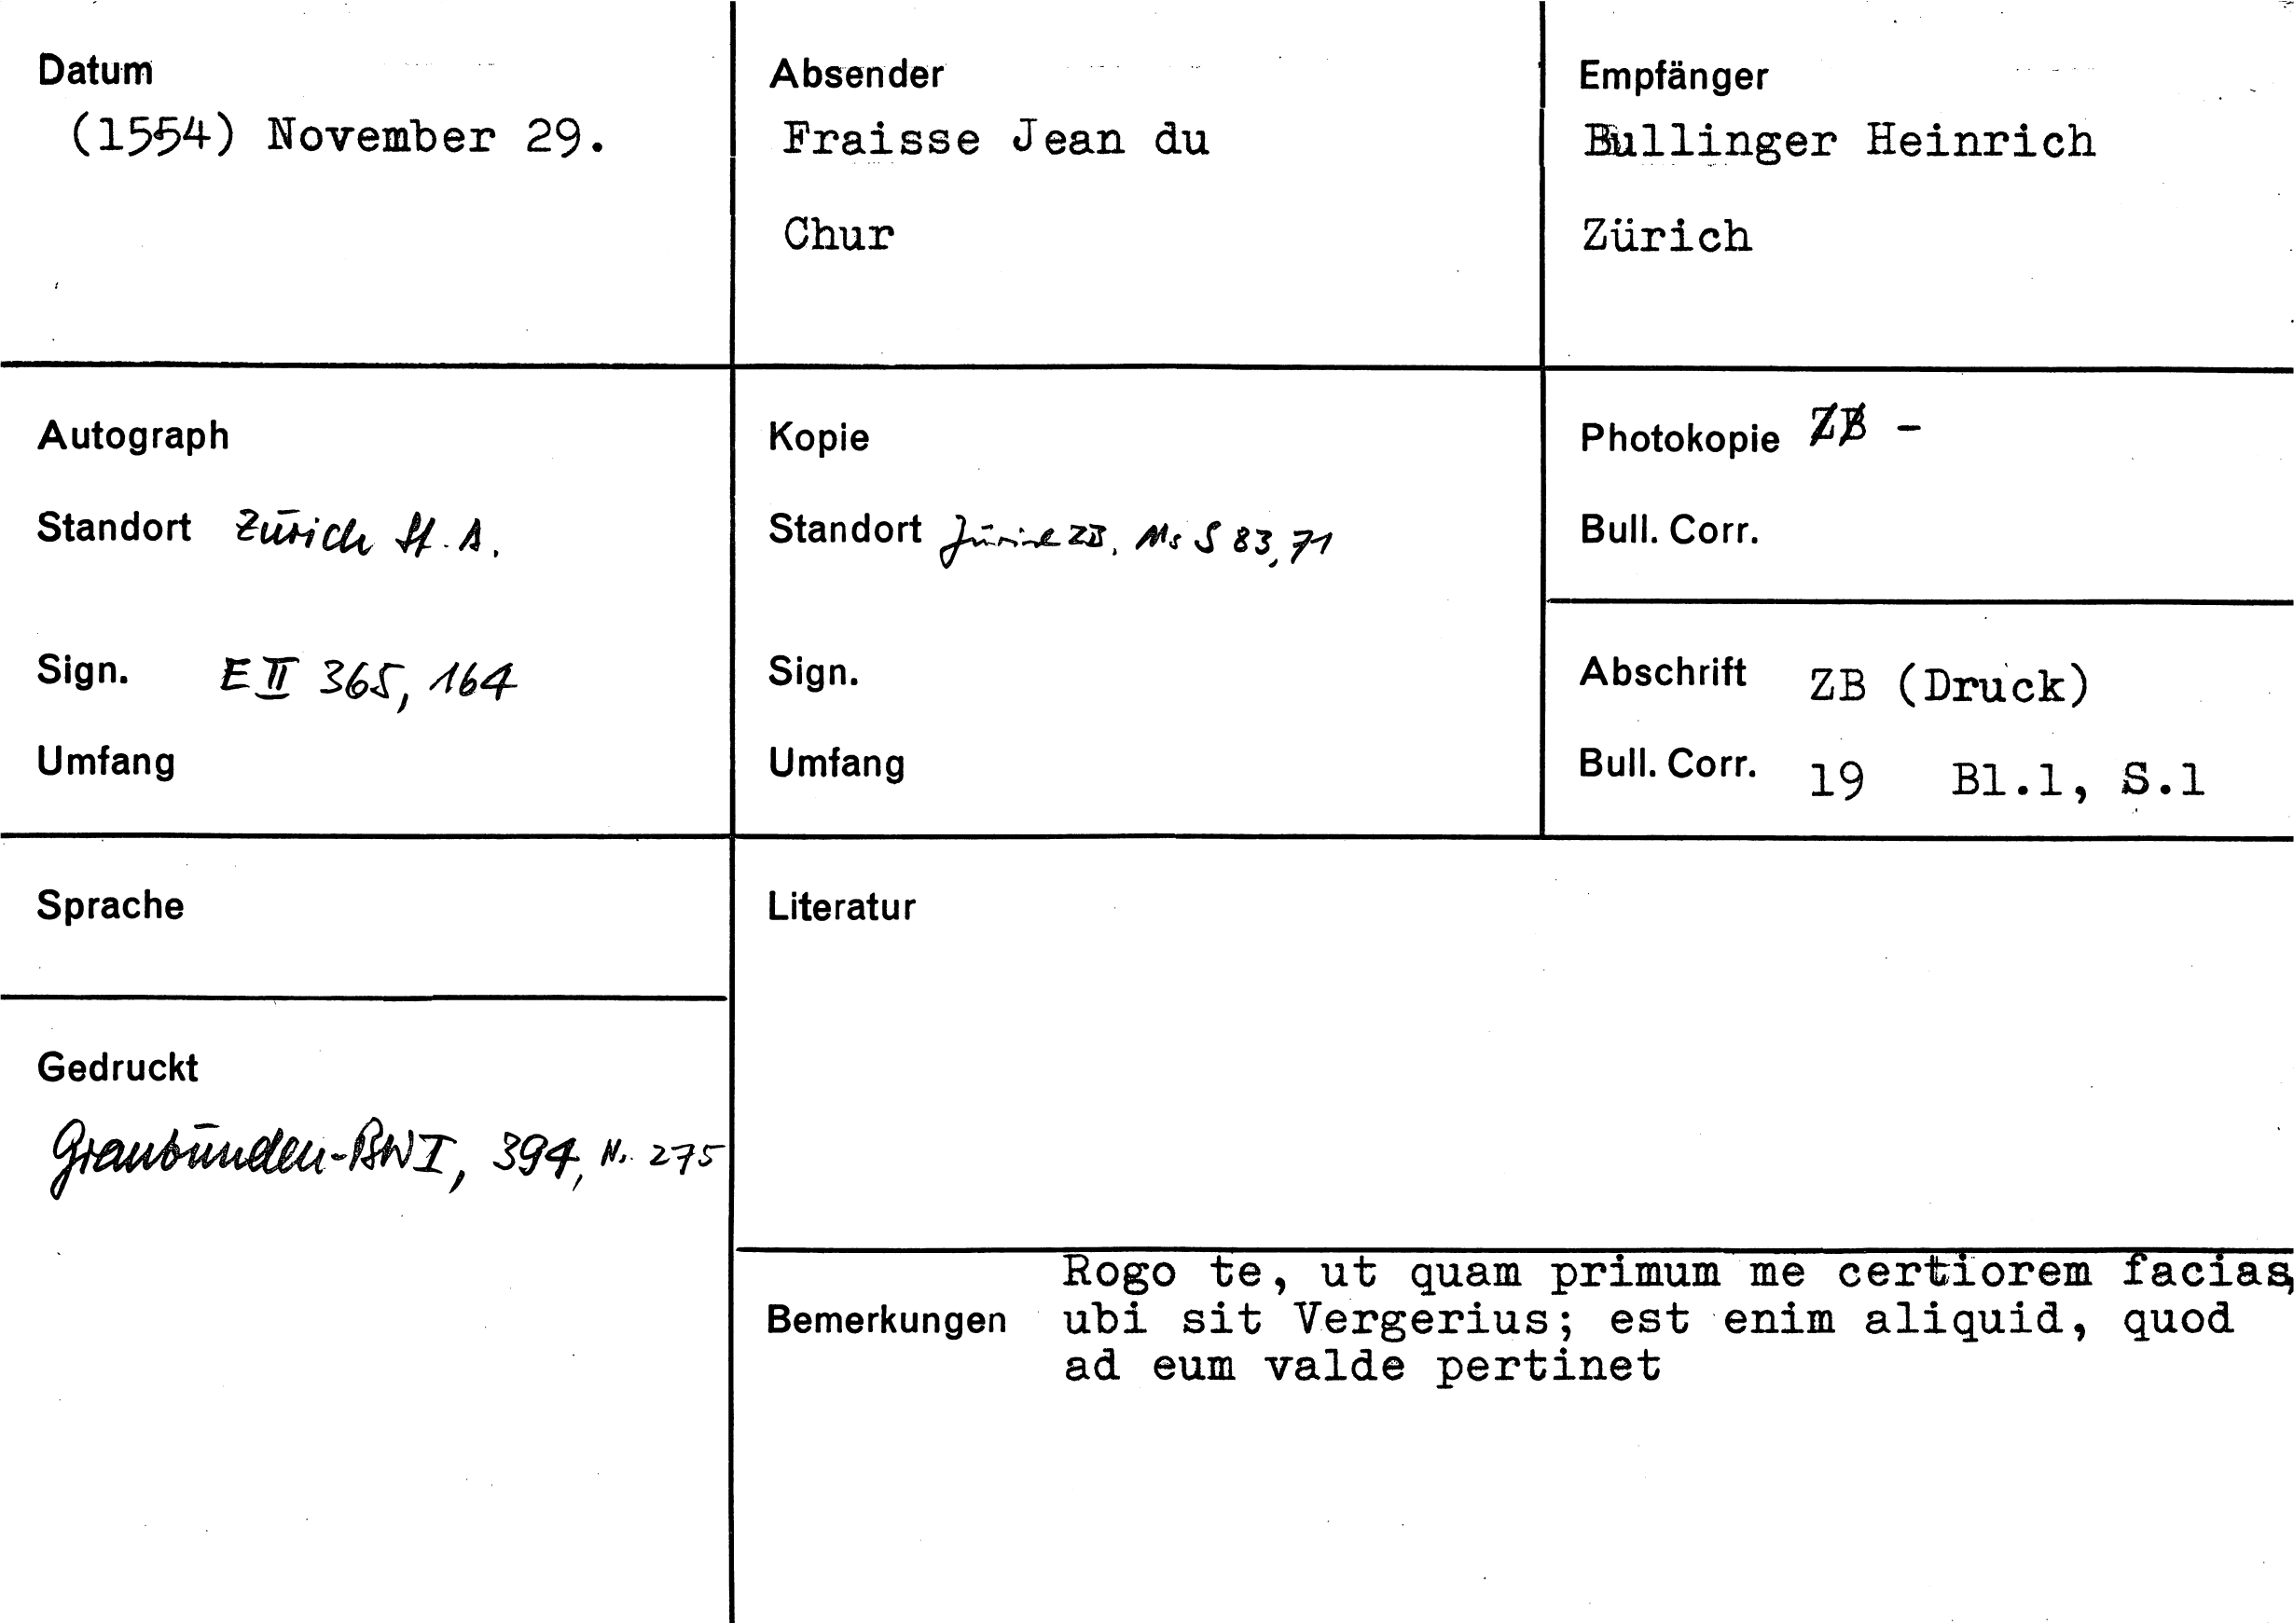 Datum
(1554) November 29.
Absender
Fraisse Jean du
Chur
Empfänger
Bullinger Heinrich
Zürich
Autograph
Standort Zürich St. A.
Sign. E II 365, 164
Umfang
Kopie
Standort Zürich ZB, Ms S 83, 71
Sign.
Umfang
Photokopie ZB -
Bull. Corr.
Abschrift ZB (Druck)
Bull. Corr. 19 Bl.1, S.1
Sprache
Gedruckt
Graubünden-BW I, 394, Nr. 275
Literatur
Bemerkungen
Rogo te, ut quam primum me certiorem facias,
ubi sit Vergerius; est enim aliquid, quod
ad eum valde pertinet